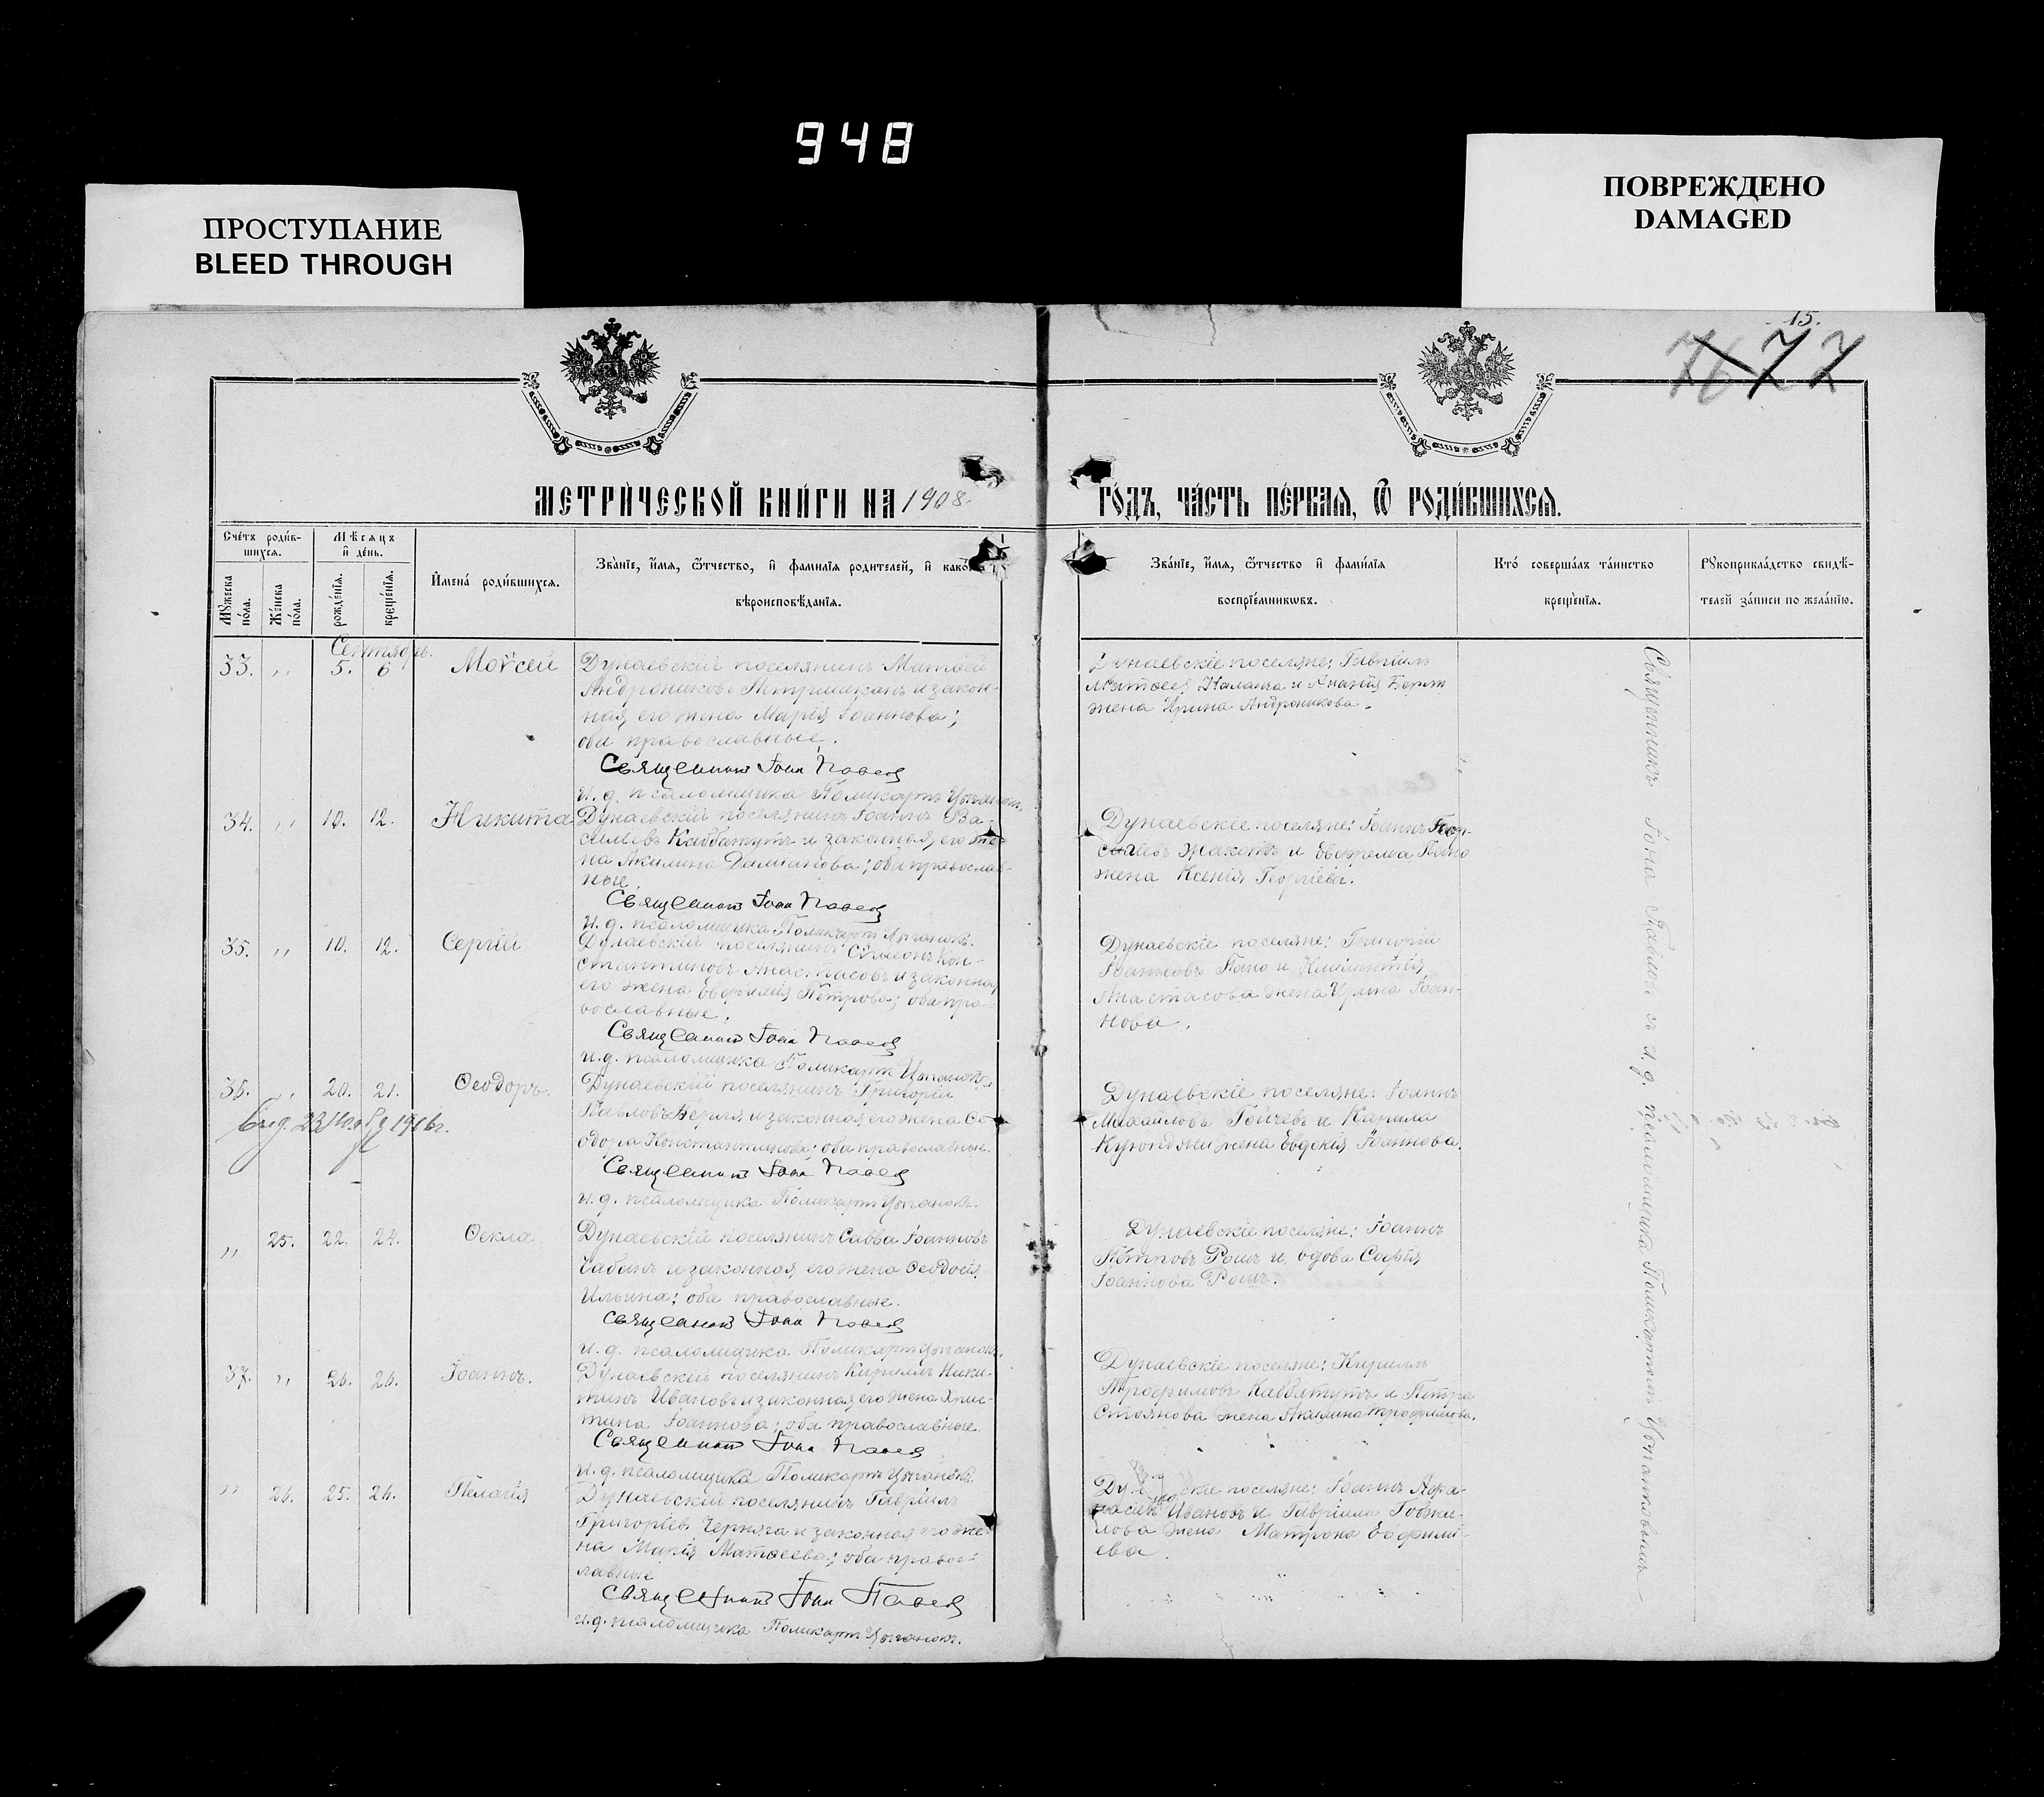 948
ПРОСТУПАНИЕ
BLEED THROUGH
ПОВРЕЖДЕНО
DAMAGED
15.
77
МЕТРИ́ЧЕСКОЙ КНИ́ГИ НА 1908.
ГО́ДЪ, ЧА́СТЬ ПЕ́РВАѦ, Ѿ РОДИ́ВШИХСѦ.
Сче́тъ роди́вшихсѧ.
Мѣ́сѧцъ и҆ де́нь.
Мꙋ́жеска по́ла.
Же́нска по́ла.
рожде́нїѧ.
креще́нїѧ.
И҆мена̀ роди́вшихсѧ.
Зва́нїе, и҆́мѧ, ѻ҆́тчество, и҆ фами́лїѧ роди́телей, и҆ како́гѡ
вѣроисповѣ́данїѧ.
Зва́нїе, и҆́мѧ, ѻ҆́тчество и҆ фами́лїѧ
воспрїе́мникѡвъ.
Кто̀ соверша́лъ та́инство
креще́нїѧ.
Рꙋкоприкла́дство свидѣ́-
телей за́писи по жела́нїю.
Сентябрь.
33. " 5. 6 Моѵсей
Дунаевскій поселянинъ Матѳей
Андрониковъ и закон-
ная его жена Марія Іоаннова;
оба православные.
Священникъ Іоан Павлов
и. д. псаломщика Поликарпъ Цыганокъ
Дунаевскіе поселяне: Гавріилъ
Матѳеев и Ананія Берт
жена Ирина Андроникова.
34. " 10. 12. Никита
Дунаевскій поселянинъ Іоаннъ Ва-
сильевъ Каббатутъ и законная его же-
на Акилина Даміанова; оба православ-
ные.
Священникъ Іоан Павлов
и. д. псаломщика Поликарпъ Цыганокъ.
Дунаевскіе поселяне: Іоаннъ
и
жена Ксенія Георгіева.
35. " 10. 12. Сергій
Дунаевскій поселянинъ Сѵмеонъ Кон-
стантиновъ Анастасовъ и законная
его жена Евфимія Петрова; оба пра-
вославные.
Священникъ Іоан Павлов
и. д. псаломщика Поликарпъ Цыганокъ
Дунаевскіе поселяне: Григорій
Іоанновъ Пано и
Анастасова жена Ирина Іоан-
нова.
35. " 20. 21. Ѳеодоръ.
23 1916 г.
Дунаевскій поселянинъ Григорій
Павловъ и законная его жена Ѳе-
одора Константинова; оба православные.
Священникъ Іоан Павлов
и. д. псаломщика Поликарпъ Цыганокъ.
Дунаевскіе поселяне: Іоаннъ
Михайловъ Гойчевъ и Кирилла
Куюнджи жена Евдокія Іоаннова.
" 25. 22. 24. Ѳекла
Дунаевскій поселянинъ Савва Іоанновъ
Чабанъ и законная его жена Ѳеодосія
Ильина; оба православные.
Священникъ Іоан Павлов
и. д. псаломщика Поликарпъ Цыганокъ.
Дунаевскіе поселяне: Іоаннъ
Петровъ Рошъ и вдова Софія
Іоаннова Рошъ.
37. " 26. 26. Іоаннъ.
Дунаевскій поселянинъ Кириллъ Ники-
тинъ Ивановъ и законная его жена Хрис-
тина Іоаннова; оба православные.
Священникъ Іоан Павлов
и. д. псаломщика Поликарпъ Цыганокъ.
Дунаевскіе поселяне: Кириллъ
Трофимовъ Каббатутъ и Петра
Стоянова жена Акилина Трофимова.
" 26. 25. 26. Пелагія
Дунаевскій поселянинъ Гавріилъ
Григорьевъ Черняга и законная его же-
на Марія Матѳеева; оба правос-
лавные
Священникъ Іоан Павлов
и. д. псаломщика Поликарпъ Цыганокъ.
поселяне: Іоаннъ Аѳа-
насіевъ Ивановъ и Гавріила
жена Матрона Евфимі-
ева.
Священникъ Іона Павловъ съ и. д. псаломщика Поликарпомъ Цыганковымъ